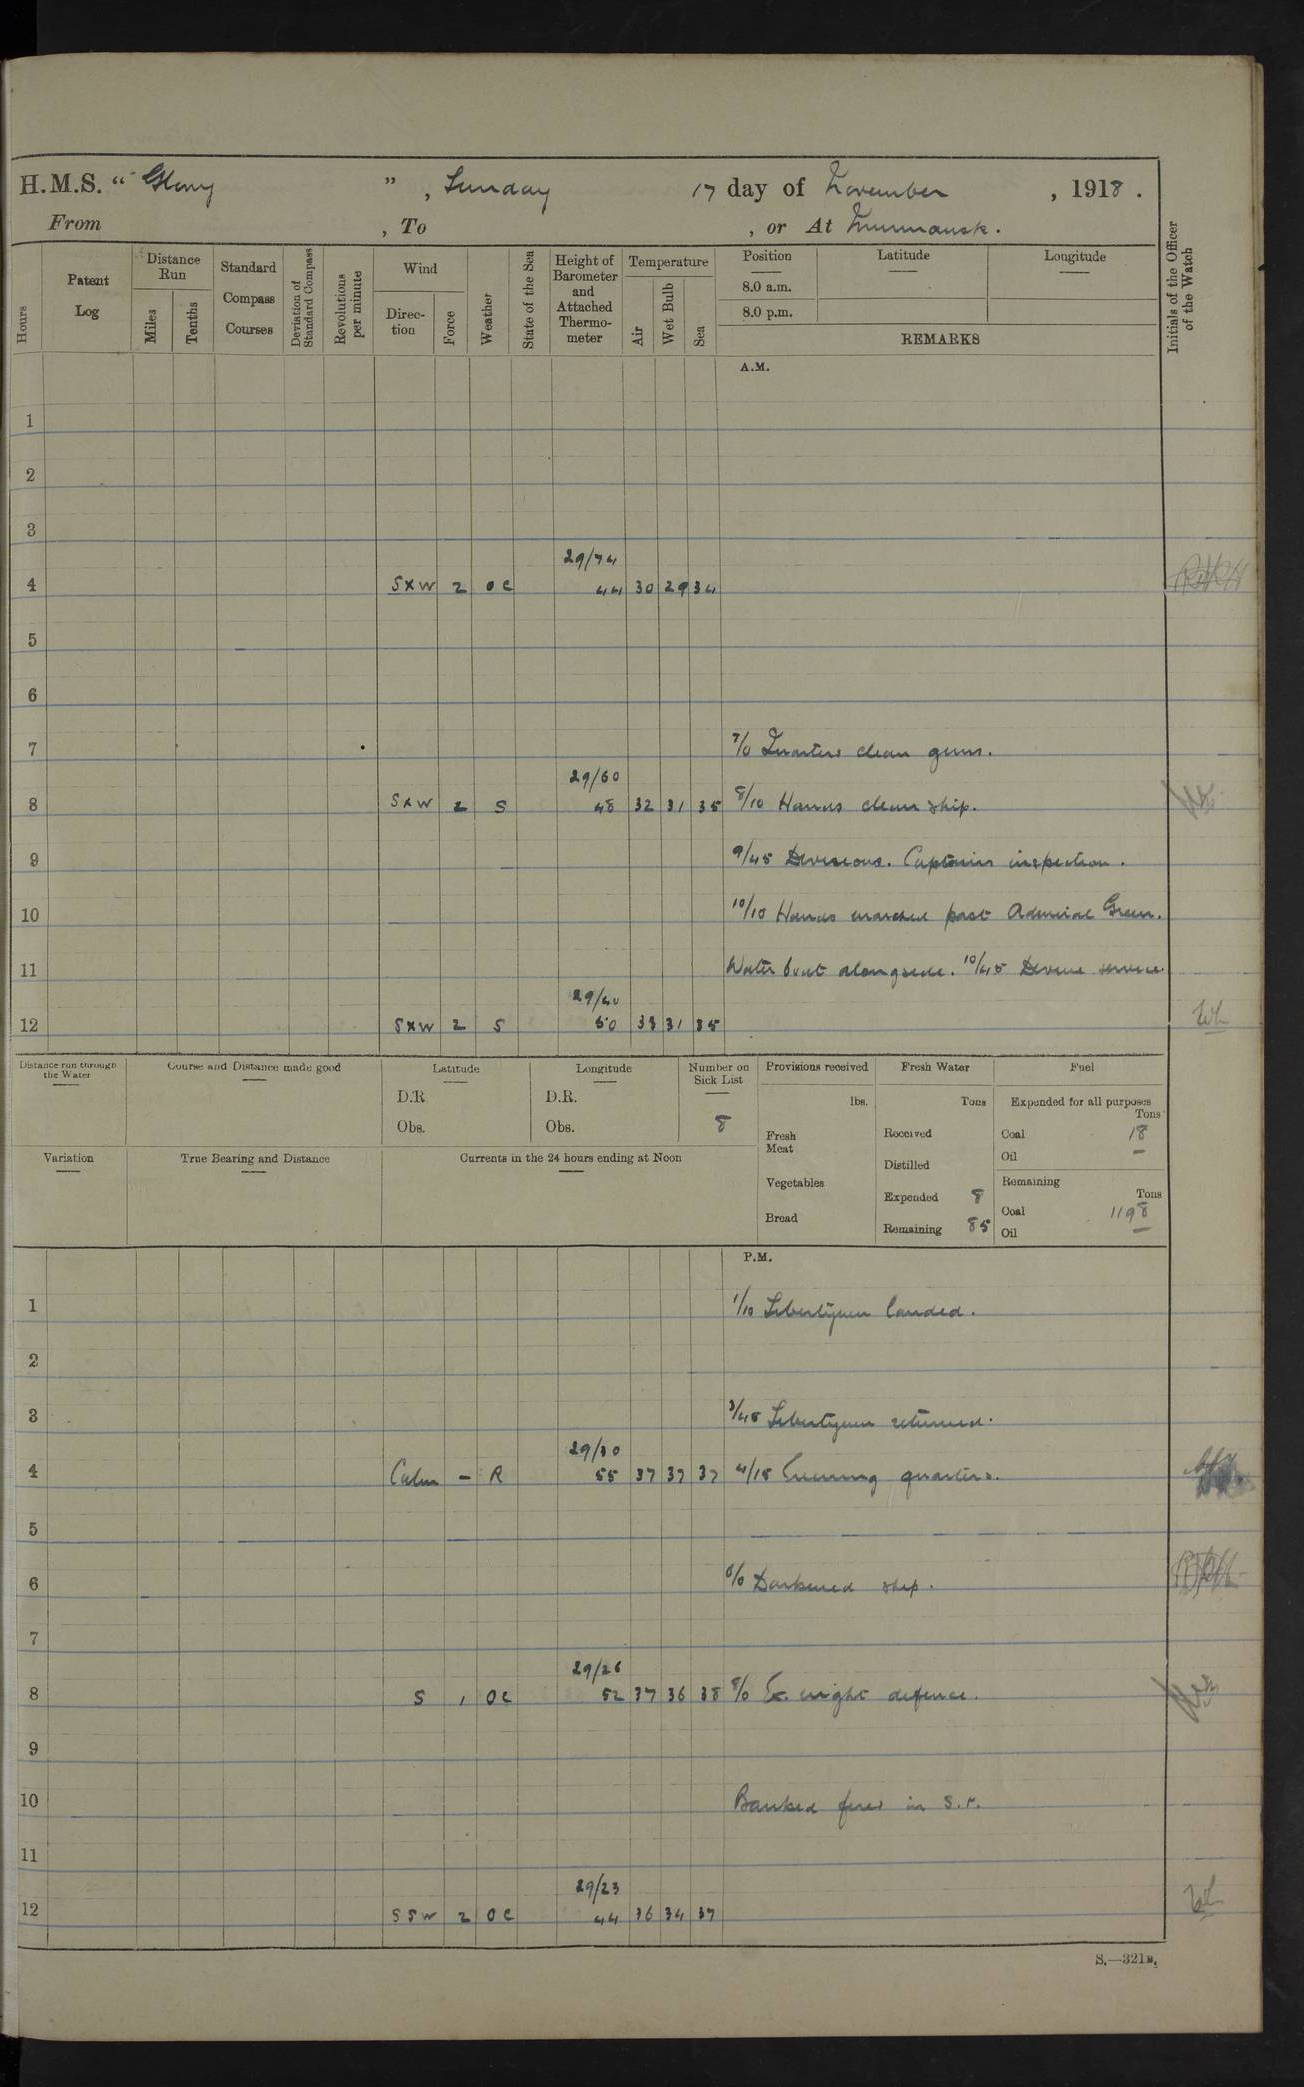 H.M.S. “ Glory ” , Sunday 17 day of November , 1918 .
From , To , or At Murmansk.
Hours
Patent Log
Distance Run
Miles
Tenths
Standard Compass Courses
Deviation of Standard Compass
Revolutions per minute
Wind
Direction
Force
Weather
State of the Sea
Height of Barometer and Attached Thermometer
Temperature
Air
Wet Bulb
Sea
Position
8.0 a.m.
8.0 p.m.
Latitude
Longitude
REMARKS
Initials of the Officer of the Watch
A.M.
1
2
3
29/74
4 SxW 2 OC 44 30 29 34
5
6
7 7/0 Quarters clean guns.
29/60
8 SxW 2 S 48 32 31 35 8/10 Hands clean ship.
9 9/45 Divisions. Captains inspection.
10 10/10 Hands marched past Admiral Green.
11 Water boat alongside. 10/45 Devine service.
29/40
12 SxW 2 S 50 33 31 35
Distance run through the Water
Course and Distance made good
Latitude
D.R
Obs.
Longitude
D.R.
Obs.
Number on Sick List
8
Provisions received
lbs.
Fresh Meat
Vegetables
Bread
Fresh Water
Tons
Received
Distilled
Expended 8
Remaining 85
Fuel
Expended for all purposes
Tons
Coal 18
Oil –
Remaining
Tons
Coal 1198
Oil –
Variation
True Bearing and Distance
Currents in the 24 hours ending at Noon
P.M.
1 1/10 Libertymen landed.
2
3 3/45 Libertymen returned.
29/30
4 Calm – R 55 37 37 37 4/15 Evening quarters.
5
6 6/0 Darkened ship.
7
29/26
8 S 1 OC 52 37 36 38 8/0 Ex. night defence.
9
10 Banked fires in S.P.
11
29/23
12 SSW 2 OC 44 36 34 37
S.—321B.